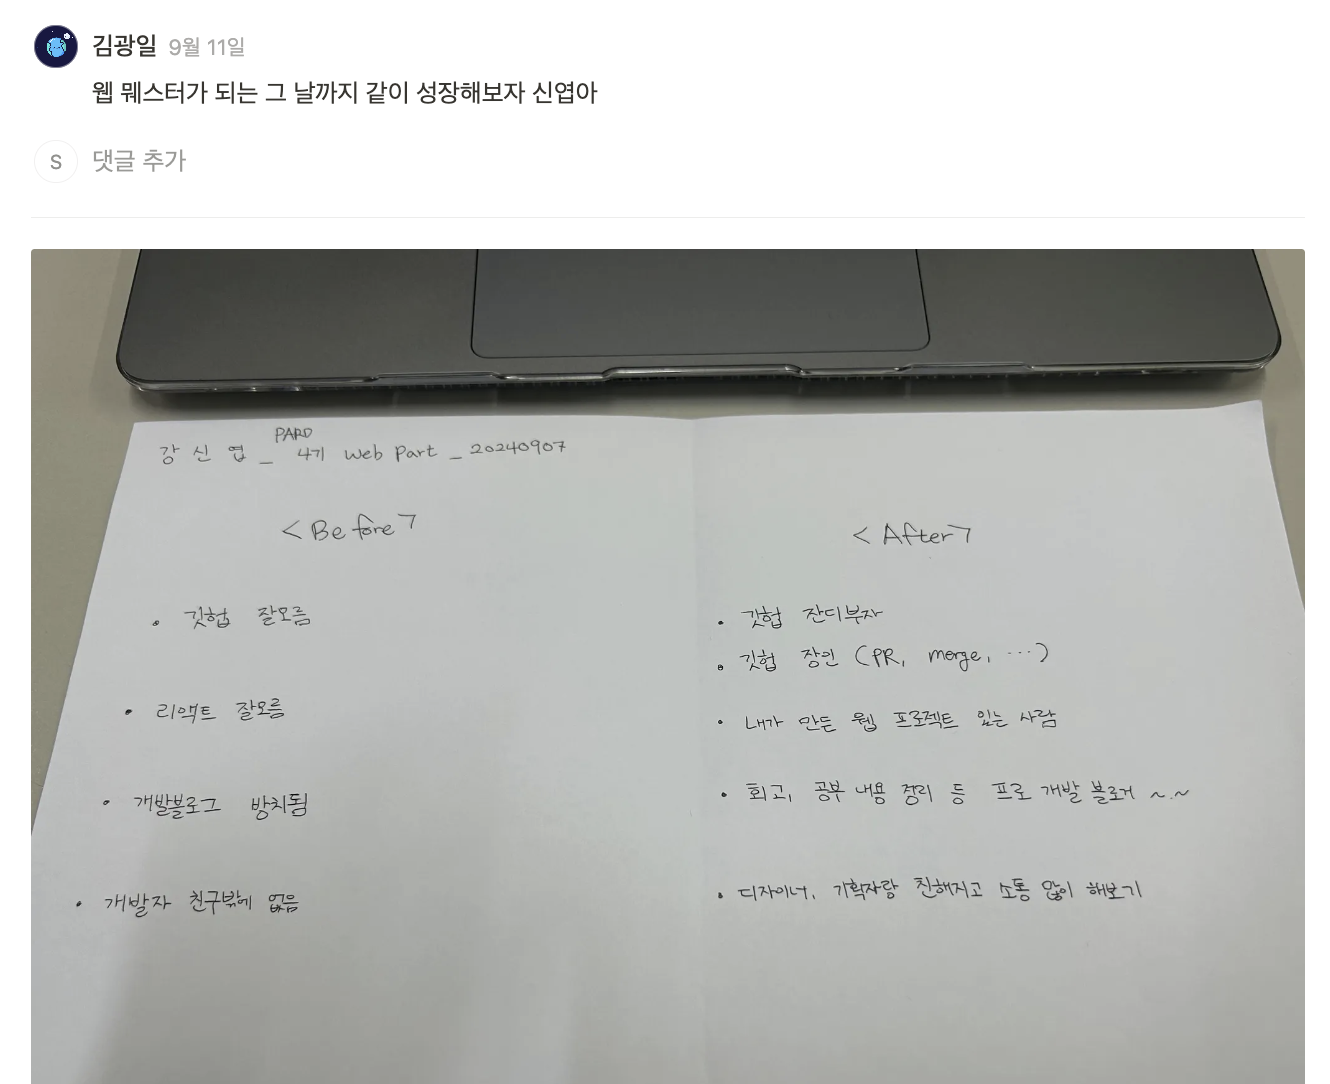 김광일 9월 11일
웹 뭬스터가 되는 그 날까지 같이 성장해보자 신엽아
S 댓글 추가
PARD
강신엽 _ 4기 Web Part _ 20240907
<Before>
<After>
• 깃헙 잘모름
• 깃헙 잔디부자
• 깃헙 장인 (PR, merge, ...)
• 리액트 잘모름
• 내가 만든 웹 프로젝트 있는 사람
• 개발블로그 방치됨
• 회고, 공부 내용 정리 등 프로 개발 블로거 ~.~
• 개발자 친구밖에 없음
• 디자이너, 기획자랑 친해지고 소통 많이 해보기